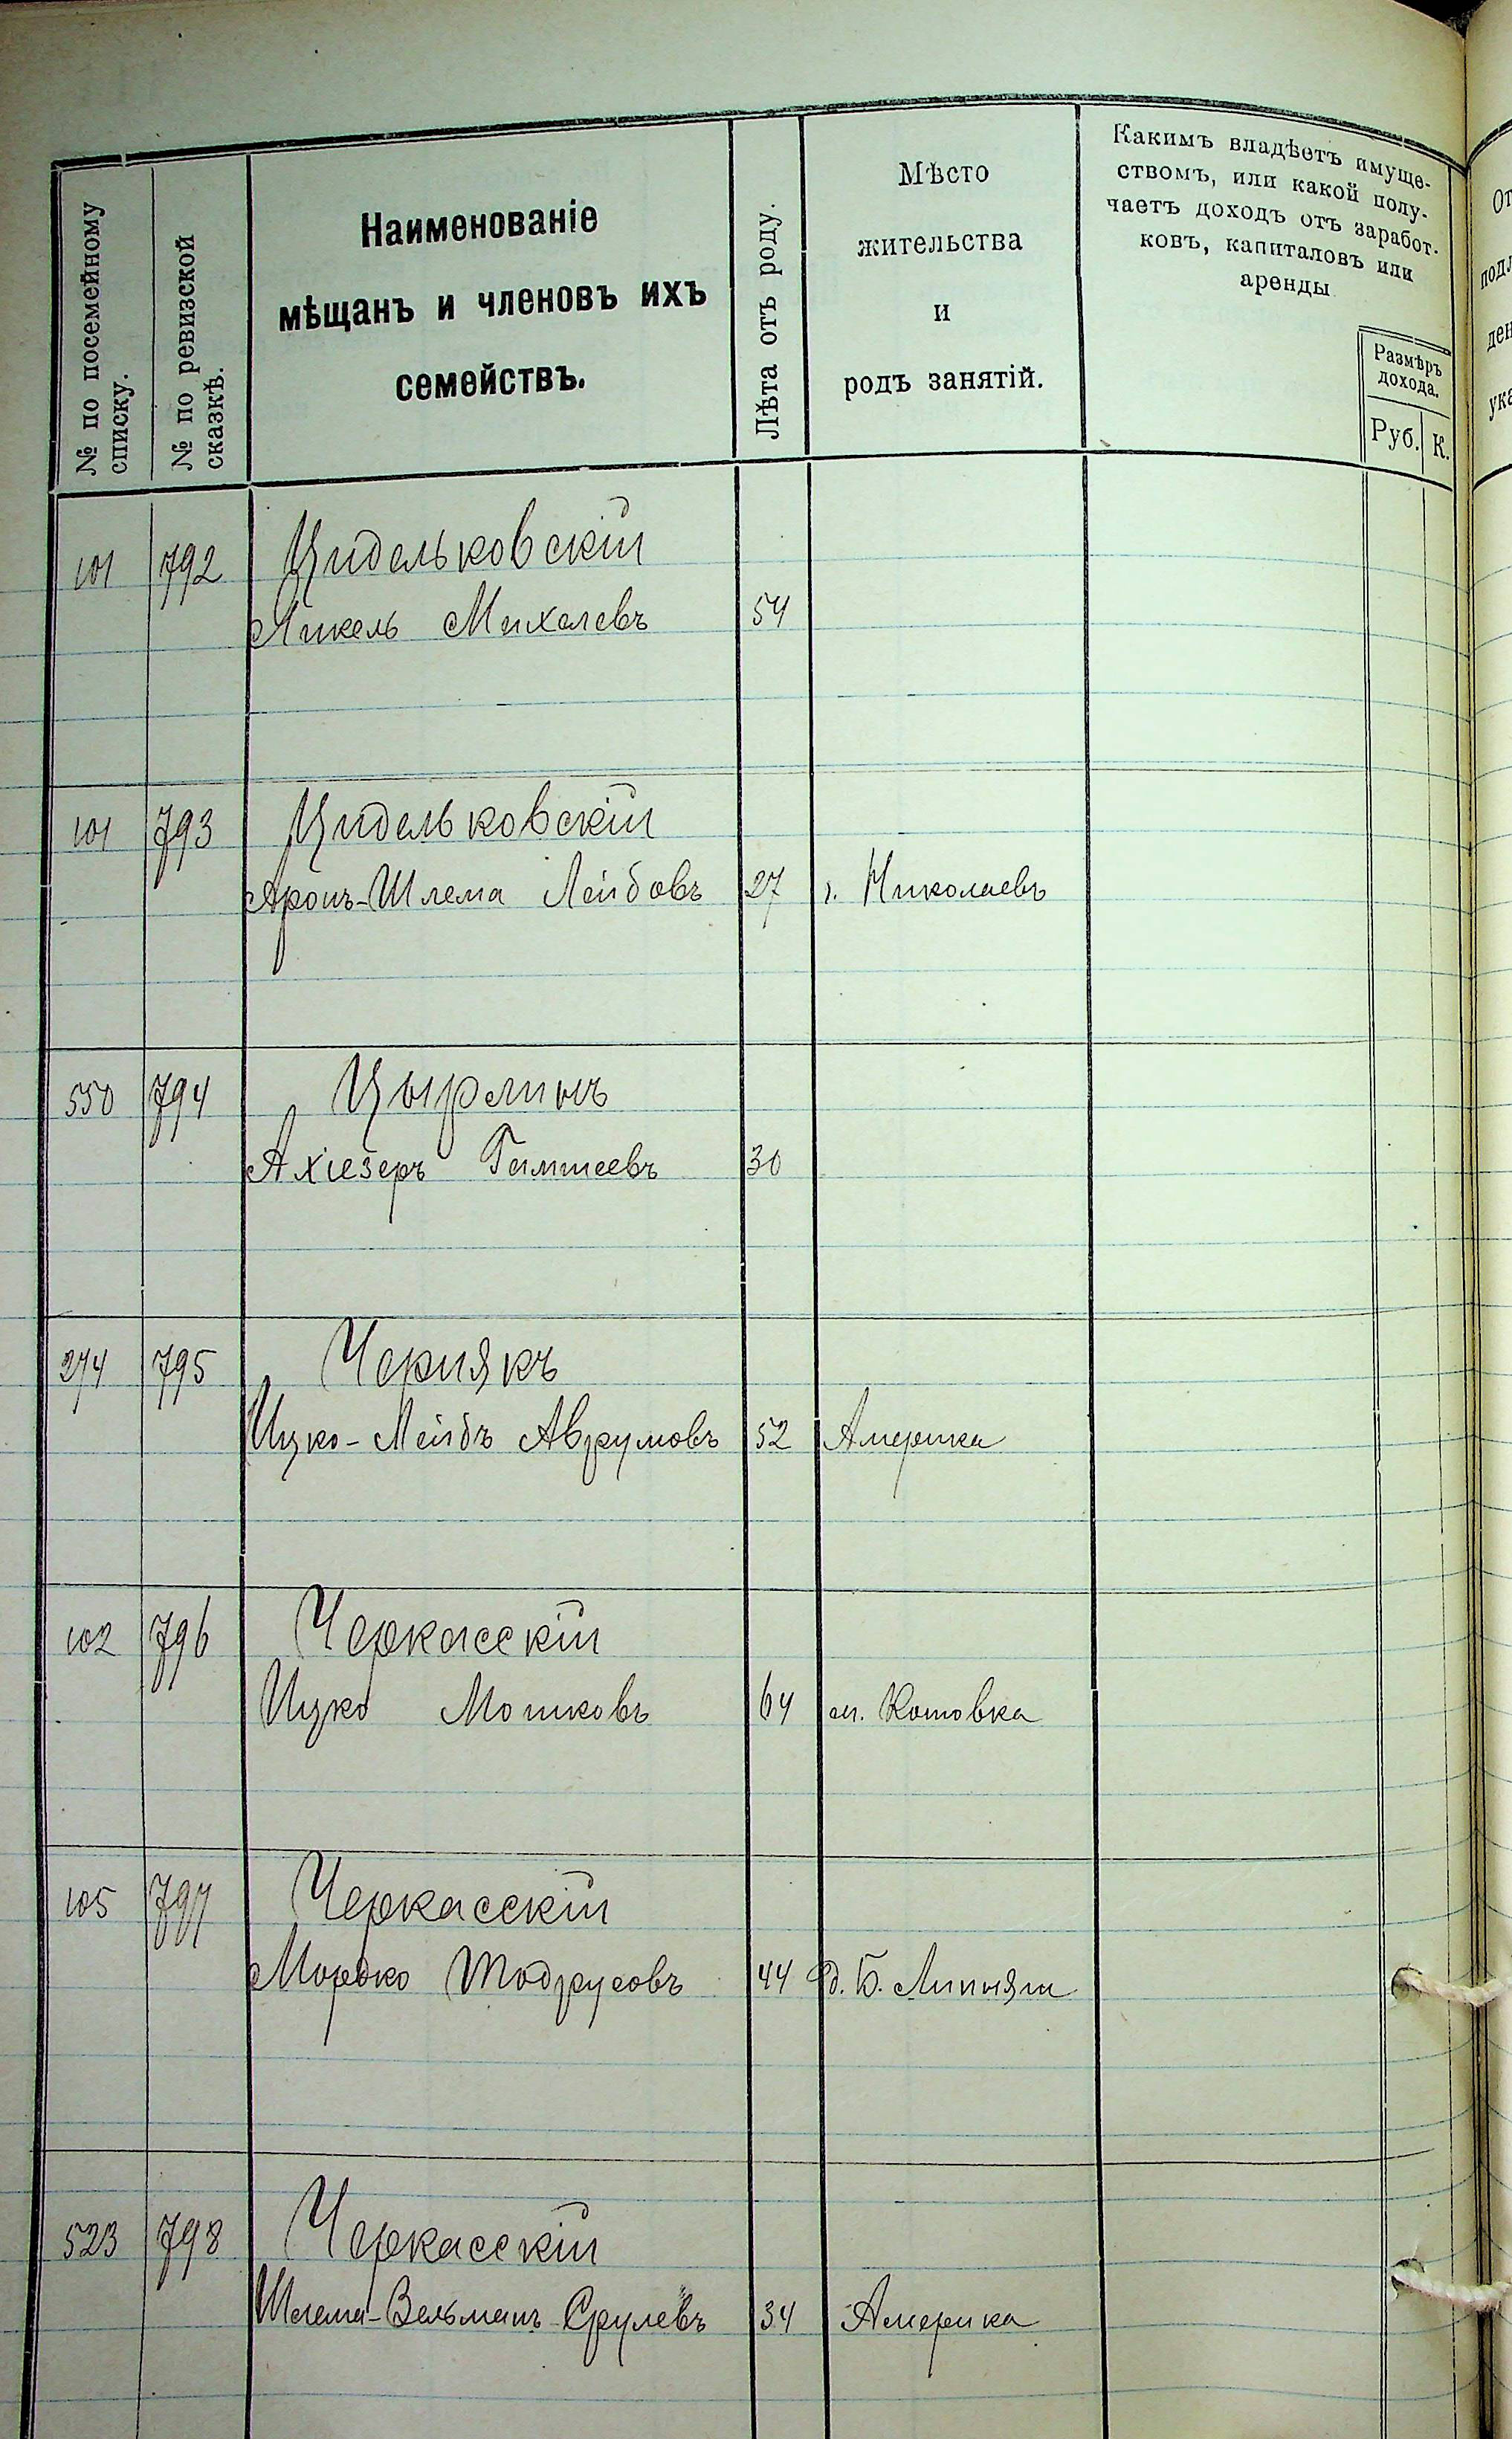 № по посемейному
списку.
№ по ревизской
сказкѣ.
Наименованіе
мѣщанъ и членовъ ихъ
семействъ.
Лѣта отъ роду.
Мѣсто
жительства
и
родъ занятій.
Какимъ владѣетъ имуще-
ствомъ, или какой полу-
чаетъ доходъ отъ заработ-
ковъ, капиталовъ или
аренды
Размѣръ
дохода.
Руб. К.
101 792 Цидельковскій
Янкель Михелевъ 54
101 793 Цидельковскій
Аронъ-Шлема Лейбовъ 27 г. Николаевъ
550 794 Цырлинъ
Ахіезеръ Гимшеевъ 30
274 795 Чернякъ
Ицко-Лейбъ Аврумовъ 52 Америка
102 796 Черкасскій
Ицко Мошковъ 64 м. Котовка
105 797 Черкасскій
Мордко Тодрусовъ 44 д. Б. Липняги
523 798 Черкасскій
Шлема-Вельманъ Срулевъ 34 Америка